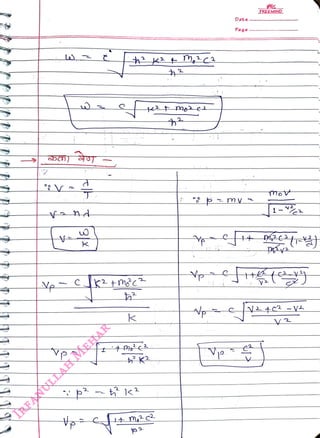 Date
Page
ω = c √(ħ² k² + m₀² c² / ħ²)
ω = c √(k² + m₀² c² / ħ²)
→ कला वेग —
∵ V = λ / T
V = nλ
V = ω / k
Vp = c √(k² + m₀² c² / ħ²) / k
Vp = √(1 + m₀² c² / ħ² k²)
∵ p² = ħ² k²
Vp = c √(1 + m₀² c² / p²)
∵ p = mv = m₀v / √(1 - v²/c²)
Vp = c √(1 + m₀² c² / m₀² v² (1 - v²/c²))
Vp = c √(1 + c²/v² (c² - v² / c²))
Vp = c √(v² + c² - v² / v²)
Vp = c² / v
IRFANULLAH MEHAR